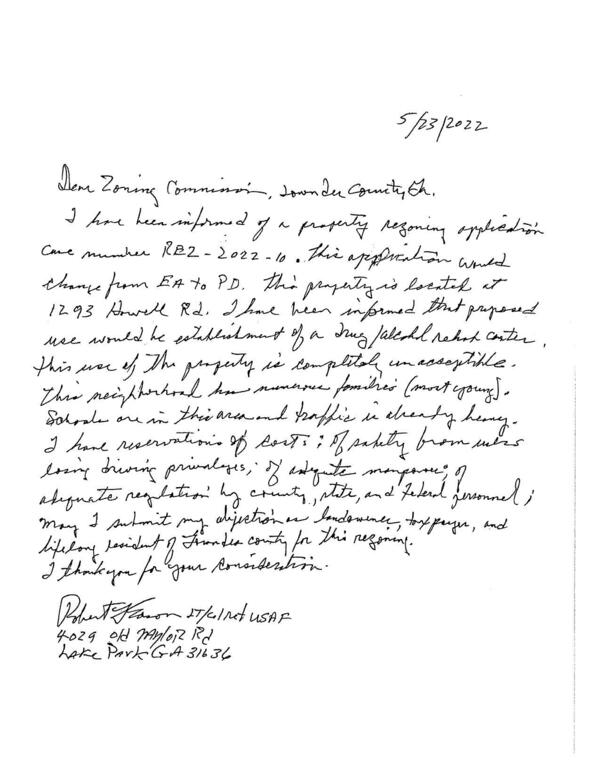 5/23/2022
Dear Zoning Commission, Lowndes County, Ga.
I have been informed of a property rezoning application
case number REZ-2022-10. This application would
change from EA to PD. This property is located at
1293 Howell Rd. I have been informed that proposed
use would be establishment of a drug/alcohol rehab center.
This use of the property is completely unacceptible.
This neighborhood has numerous families (most young).
Schools are in this area and traffic is already heavy.
I have reservations of costs; of safety from users
losing driving privaleges; of adequate manpower; of
adequate regulation by county, state, and Federal personnel;
May I submit my objection as landowner, taxpayer, and
lifelong resident of Lowndes county for this rezoning.
I thank you for your consideration.
Robert LT/Col ret USAF
4029 Old Naylor Rd
Lake Park GA 31636